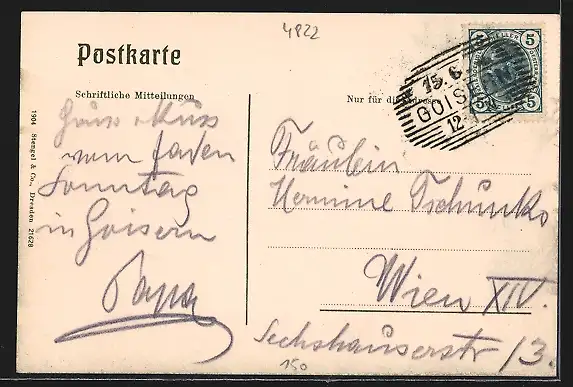 4822
Postkarte
Schriftliche Mitteilungen
Nur für die Adresse
1904 Stengel & Co., Dresden 21628
15. 6.
GOIS
12
5 HELLER 5
5 5
Gruss & Kuss
vom faden
Sonntag
in Goisern
Papa
Fräulein
Hermine Tschunko
Wien XIV.
Sechshauserstr 13.
150